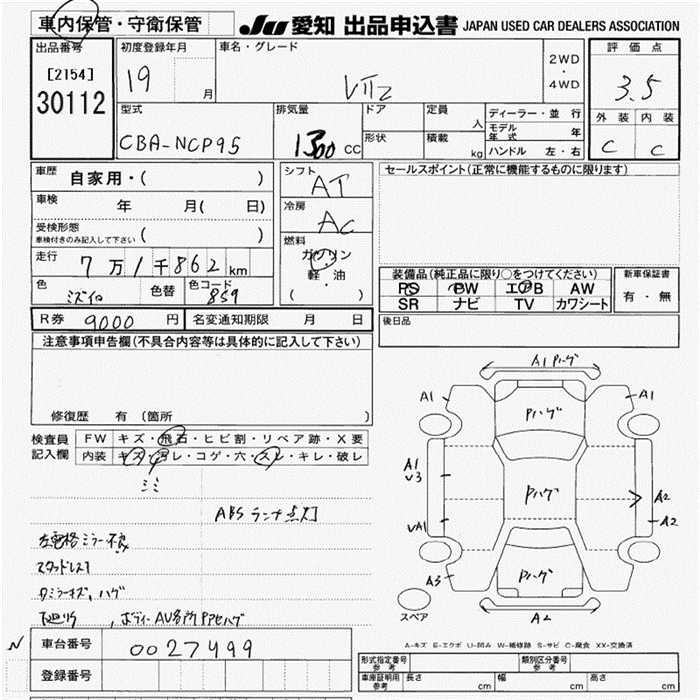 車内保管・守衛保管
JU 愛知 出品申込書 JAPAN USED CAR DEALERS ASSOCIATION
出品番号 初度登録年月 車名・グレード 2WD・4WD 評価点
[2154] 19 月 VITZ 3.5
30112
型式 排気量 ドア 定員 人 ディーラー・並行 外装 内装
CBA-NCP95 1300 CC 形状 積載 kg モデル年式 年 C C
ハンドル 左・右
車歴 自家用・( ) シフト AT セールスポイント(正常に機能するものに限ります)
車検 年 月( 日) 冷房 AC
受検形態 ( )
車検付きのみ記入して下さい
走行 7万1千862km 燃料 ガソリン 軽・油 ( )
色 ミズイロ 色替 色コード 8S9
装備品(純正品に限り○をつけてください) 新車保証書
PS PW エアB AW 有・無
SR ナビ TV カワシート
R券 9000 円 名変通知期限 月 日 後日品
注意事項申告欄(不具合内容等は具体的に記入して下さい)
修復歴 有(箇所 )
検査員記入欄 FW キズ・飛石・ヒビ割・リペア跡・X要
内装 キズ・汚レ・コゲ・穴・スレ・キレ・破レ
シミ
ABS ランプ点灯
左電格ミラー不良
スタッドレス
ハゲ
A1 Pハゲ
A1 A1
Pハゲ
A1
V3
Pハゲ
A2
VA1 A2
Pハゲ
A3
スペア A2
A-キズ E-エクボ U-凹み W-補修跡 S-サビ C-腐食 XX-交換済
車台番号 0027499
登録番号
形式指定番号 参考 類別区分番号 参考
車庫証明用 参考 長さ cm 幅 cm 高さ cm